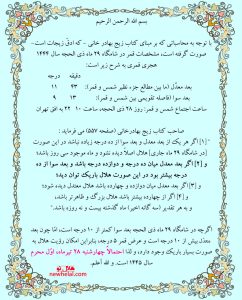 بسم الله الرحمن الرحیم
با توجه به محاسباتی که بر مبنای کتاب زیج بهادرخانی - که ادقّ زیجات است-
صورت گرفته است، مشخصات قمر در شامگاه ۲۹ ماه ذی الحجه سال ۱۴۴۴
هجری قمری به شرح زیر است:
دقیقه درجه
بعد معدّل (ما بین مطالع جزء نظیر شمس و قمر): ۴۳ ۱۱
بعد سوا (فاصله تقویمی بین شمس و قمر): ۹
ساعت اجتماع شمس و قمر: ۲۸ ذی الحجه، ساعت ۱۰ ۲۲ به افق تهران
صاحب کتاب زیج بهادرخانی (صفحه ۵۵۷) می فرماید :
"[۱] اگر هر یک از بعد معدل و بعد سوا از ده درجه زیاده نباشد در این صورت
[در شامگاه ۲۹ ماه جاری] هلال اصلاً دیده نشود و ماه موجود سی روز باشد؛
و [۲] اگر بعد معدل میان ده درجه و دوازده درجه باشد و بعد سوا از ده
درجه بیشتر بود در این صورت هلال باریک توان دید؛
و [۳] اگر بعد معدل میان دوازده و چهارده باشد هلال معتدل دیده شود؛
و [۴] اگر از چهارده بیشتر باشد هلال بزرگ و ظاهرتر باشد،
و به هر تقدیر (سه گانه اخیر) ماه گذشته بیست و نه روزه باشد."
اگرچه در شامگاه ۲۹ ماه ذی الحجه بعد سوا کمتر از ۱۰ درجه است، امّا چون بعد
معدل بیش از ۱۰ درجه است و عرض قمر ۵ درجه، بنابراین امکان رؤیت هلال به
صورت بسیار باریک وجود دارد، و لذا احتمالاً چهارشنبه ۲۸ تیرماه، اوّل محرم
سال ۱۴۴۵ است. و الله أعلم.
هلال نو
newhelal.com